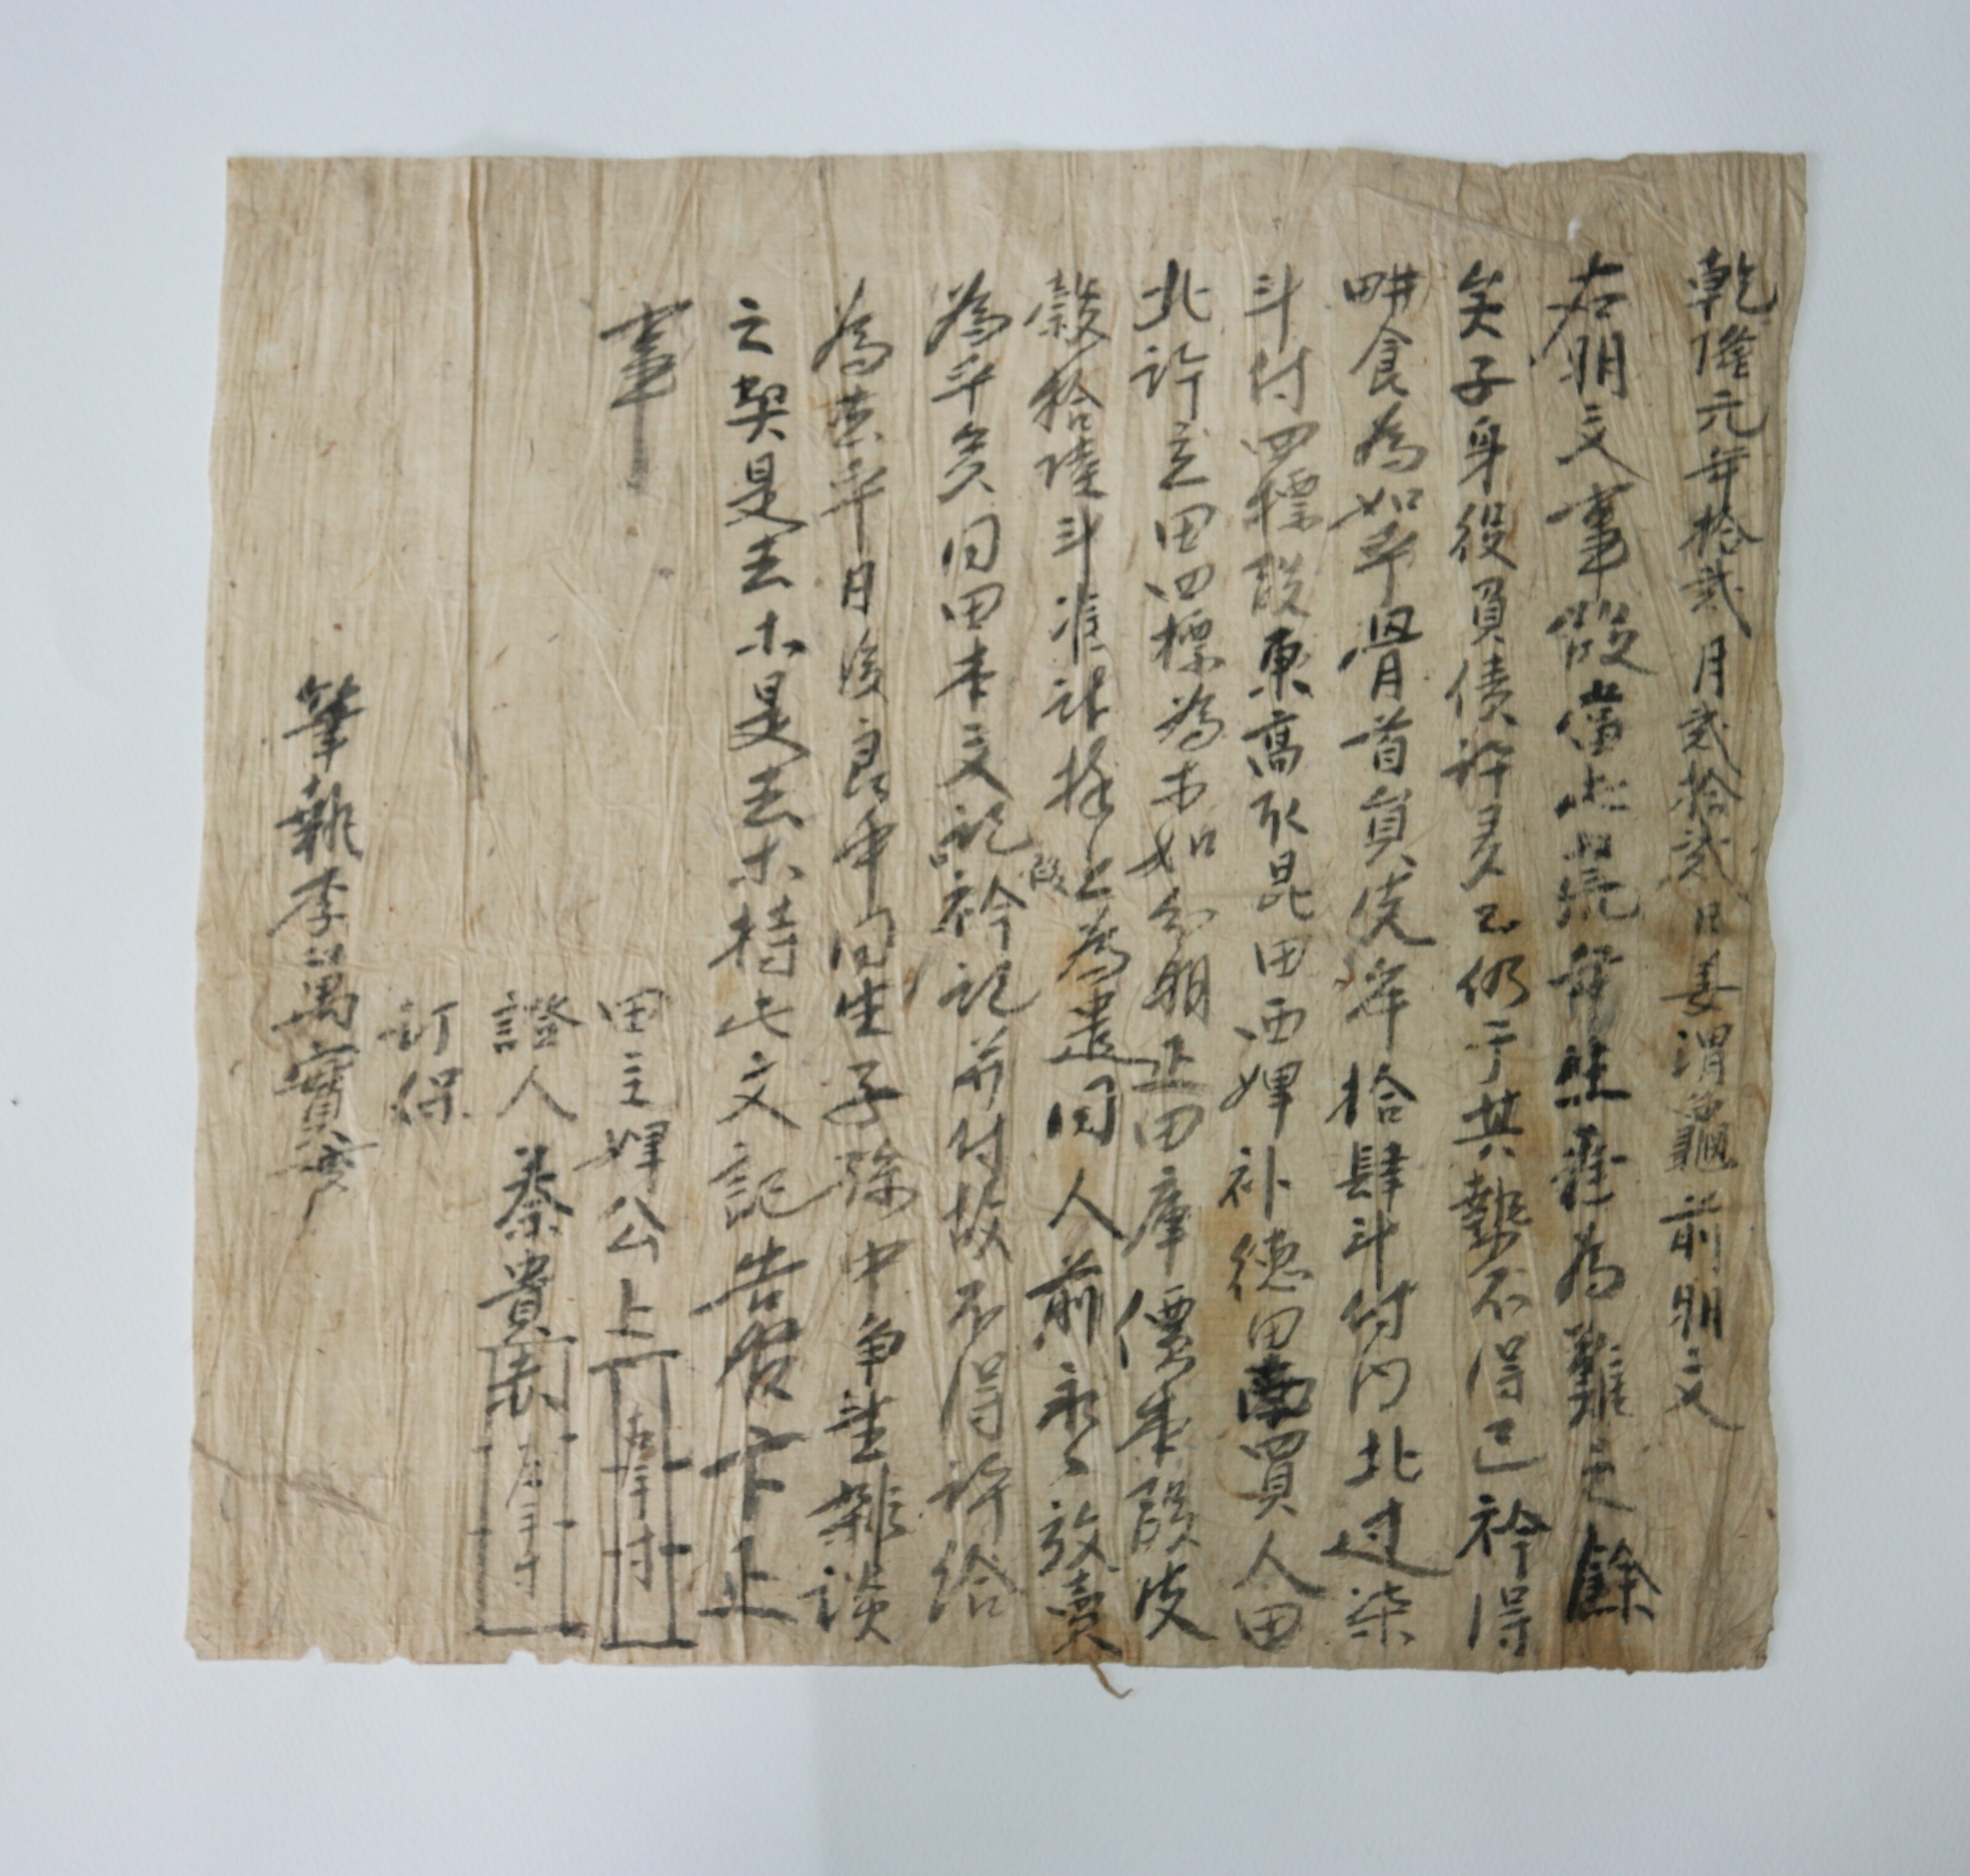 乾隆元年拾貳月貳拾貳日姜渭龜前明文
右明文事段當此荒年生理為難之餘
矣子身役負債許多乙仍于其勢不得已衿得
畊食為如乎骨首員伏岸拾肆斗付內北过柒
斗付四標段東高取昆田西婢補德田南買人田
北許立田四標為木如分明正田庫價本段皮
穀拾陸斗准計捧上為遣同人前永永放賣
段
為乎矣同田本文記衿記并付故不得許給
為去乎日後良中同生子孫中爭望雜談
之契是去木是去木持此文記告官卞正
事
田主婢公上 右手寸
證人 秦貴 左手寸
訂保
筆執李萬寶